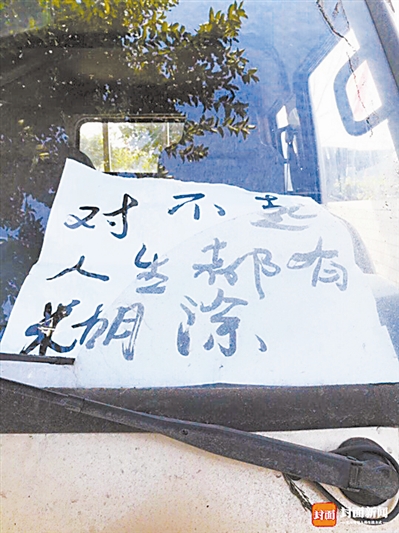 对不起
人生都有
糊涂、
封面 封面新闻